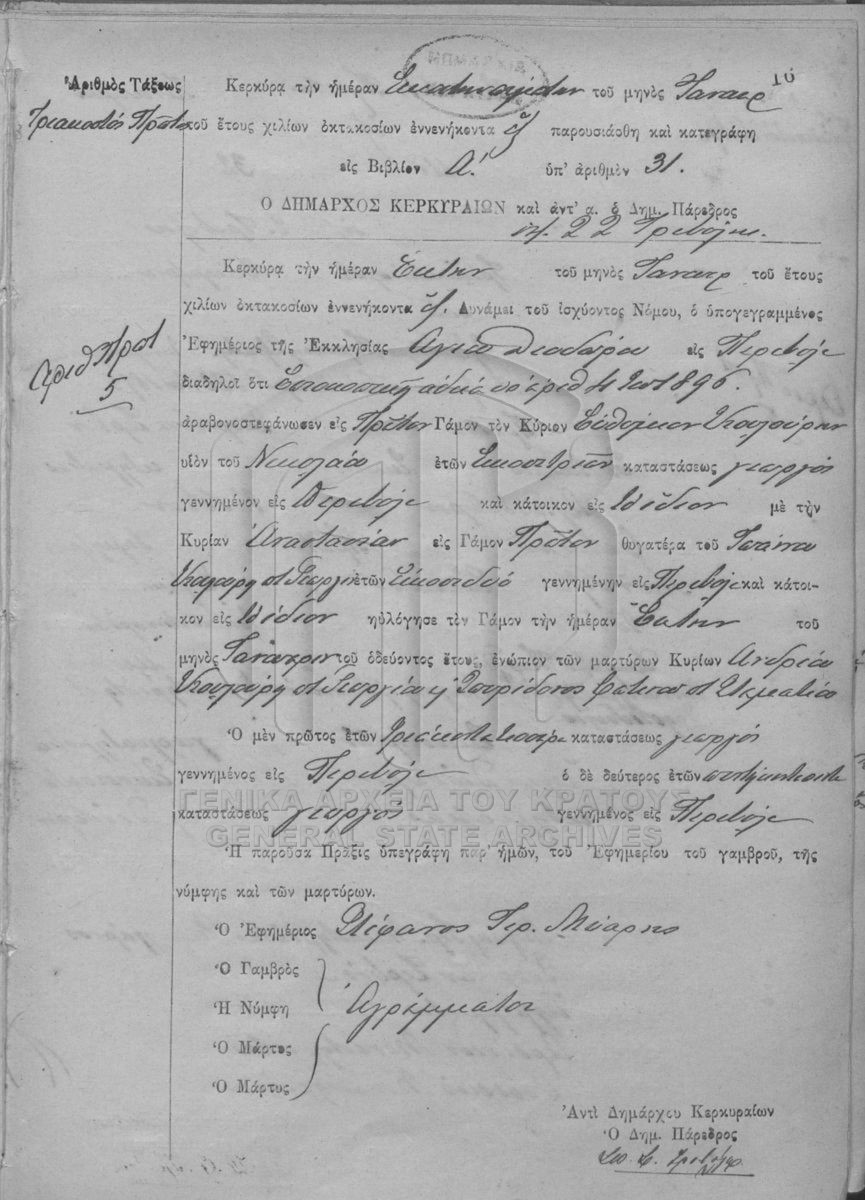 16
Ἀριθμὸς Τάξεως
Τριακοστός Πρῶτος
Κερκύρᾳ τὴν ἡμέραν τοῦ μηνὸς Ἰανουαρ
τοῦ ἔτους χιλίων ὀκτακοσίων ἐννενήκοντα ἓξ παρουσιάσθη καὶ κατεγράφη
εἰς Βιβλίον Α΄. ὑπ' ἀριθμὸν 31.
Ο ΔΗΜΑΡΧΟΣ ΚΕΡΚΥΡΑΙΩΝ καὶ ἀντ' α. ὁ Δημ. Πάρεδρος
Κερκύρᾳ τὴν ἡμέραν Ἕκτην τοῦ μηνὸς Ἰανουαρ τοῦ ἔτους
χιλίων ὀκτακοσίων ἐννενήκοντα ἓξ. Δυνάμει τοῦ ἰσχύοντος Νόμου, ὁ ὑπογεγραμμένος
Ἐφημέριος τῆς Ἐκκλησίας Αγίου Θεοδώρου εἰς Περιβόλι
Αριθ Πρωτ
5
διαδηλοῖ ὅτι 4 1896.
ἀραβονοστεφάνωσεν εἰς Πρῶτον Γάμον τὸν Κύριον Εὐθύμιον Κουλούρην
υἱὸν τοῦ Νικολάου ἐτῶν Εἰκοσιτριῶν καταστάσεως γεωργός
γεννημένον εἰς Περιβόλι καὶ κάτοικον εἰς τὸ ἴδιον μὲ τὴν
Κυρίαν Ἀναστασίαν εἰς Γάμον Πρῶτον θυγατέρα τοῦ
Κουλούρη Γεωργίου ἐτῶν Εἰκοσιδύο γεννημένην εἰς Περιβόλι καὶ κάτοι-
κον εἰς τὸ ἴδιον ηὐλόγησε τὸν Γάμον τὴν ἡμέραν Ἕκτην τοῦ
μηνὸς Ἰανουαρίου τοῦ ὁδεύοντος ἔτους, ἐνώπιον τῶν μαρτύρων Κυρίων Ανδρέου
Κουλούρη Γεωργίου Σπυρίδωνος
Ὁ μὲν πρῶτος ἐτῶν Τριάκοντα τεσσάρων καταστάσεως γεωργός
γεννημένος εἰς Περιβόλι ὁ δὲ δεύτερος ἐτῶν
καταστάσεως γεωργός γεννημένος εἰς Περιβόλι
ΓΕΝΙΚΑ ΑΡΧΕΙΑ ΤΟΥ ΚΡΑΤΟΥΣ
GENERAL STATE ARCHIVES
Ἡ παροῦσα Πρᾶξις ὑπεγράφη παρ' ἡμῶν, τοῦ Ἐφημερίου τοῦ γαμβροῦ, τῆς
νύμφης καὶ τῶν μαρτύρων.
Ὁ Ἐφημέριος Στέφανος Ἱερ.
Ὁ Γαμβρὸς
Ἡ Νύμφη Ἀγράμματοι
Ὁ Μάρτυς
Ὁ Μάρτυς
Ἀντὶ Δημάρχου Κερκυραίων
Ὁ Δημ. Πάρεδρος